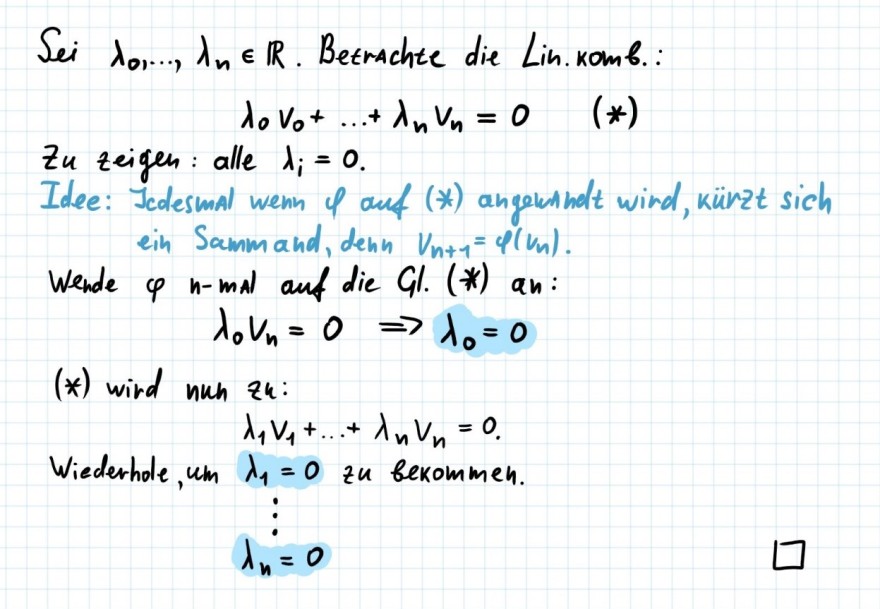 Sei λ₀,..., λₙ ∈ ℝ. Betrachte die Lin.komb.:
λ₀v₀ + ...+ λₙvₙ = 0 (*)
Zu zeigen: alle λᵢ = 0.
Idee: Jedesmal wenn φ auf (*) angewandt wird, kürzt sich
ein Sammand, denn vₙ₊₁ = φ(vₙ).
Wende φ n-mal auf die Gl. (*) an:
λ₀vₙ = 0 ⟹ λ₀ = 0
(*) wird nun zu:
λ₁v₁ +...+ λₙvₙ = 0.
Wiederhole, um λ₁ = 0 zu bekommen.
⋮
λₙ = 0
□